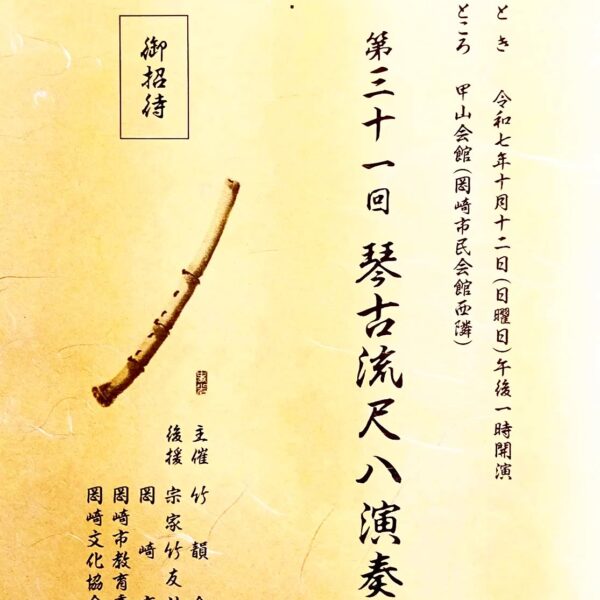 とき 令和七年十月十二日(日曜日)午後一時開演
ところ 甲山会館(岡崎市民会館西隣)
第三十一回 琴古流尺八演奏
御招待
主催 竹韻
後援 宗家竹友
岡崎
岡崎市教育
岡崎文化協